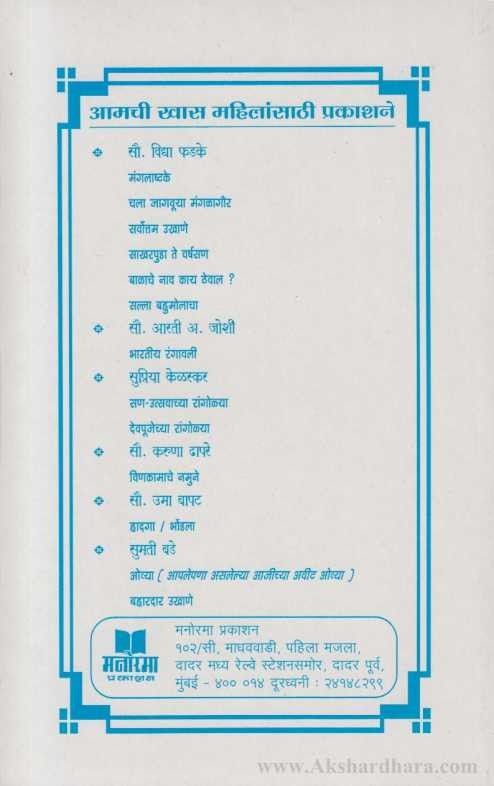 आमची खास महिलांसाठी प्रकाशने
सौ. विद्या फडके
मंगलाष्टके
चला जागवूया मंगळागौर
सर्वोत्तम उखाणे
साखरपुडा ते वर्षसण
बाळाचे नाव काय ठेवाल ?
सल्ला बहुमोलाचा
सौ. आरती अ. जोशी
भारतीय रंगावली
सुप्रिया केळस्कर
सण-उत्सवाच्या रांगोळ्या
देवपूजेच्या रांगोळ्या
सौ. करुणा ढापरे
विणकामाचे नमुने
सौ. उमा बापट
हादगा / भोंडला
सुमती बडे
ओव्या ( आपलेपणा असलेल्या आजीच्या अवीट ओव्या )
बहारदार उखाणे
मनोरमा
प्रकाशन
मनोरमा प्रकाशन
१०२/सी, माधववाडी, पहिला मजला,
दादर मध्य रेल्वे स्टेशनसमोर, दादर पूर्व,
मुंबई - ४०० ०१४ दूरध्वनी : २४१४८२९९
www.Akshardhara.com